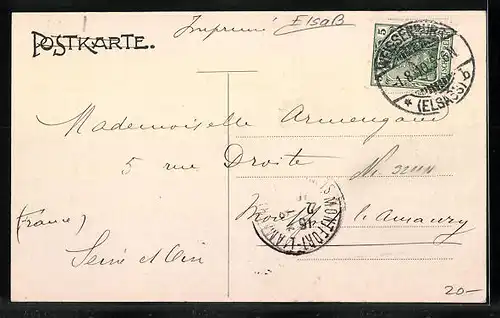 Imprimé Elsaß
POSTKARTE.
5
WEISSENBURG
(ELSASS)
Mademoiselle Armengant
5 rue Droite
Montfort l'Amaury
MONTFORT-L'AMAURY
(France)
Seine et Oise
20-